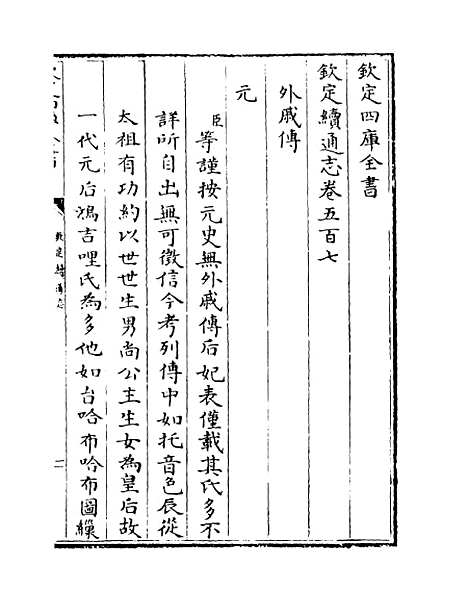 欽定四庫全書
欽定續通志卷五百七
外戚傳
元
臣等謹按元史無外戚傳后妃表僅載其氏多不
詳所自出無可徵信今考列傳中如托音色辰從
太祖有功約以世世生男尚公主生女為皇后故
一代元后鴻吉哩氏為多他如台哈布哈布圖纙
欽定續通志